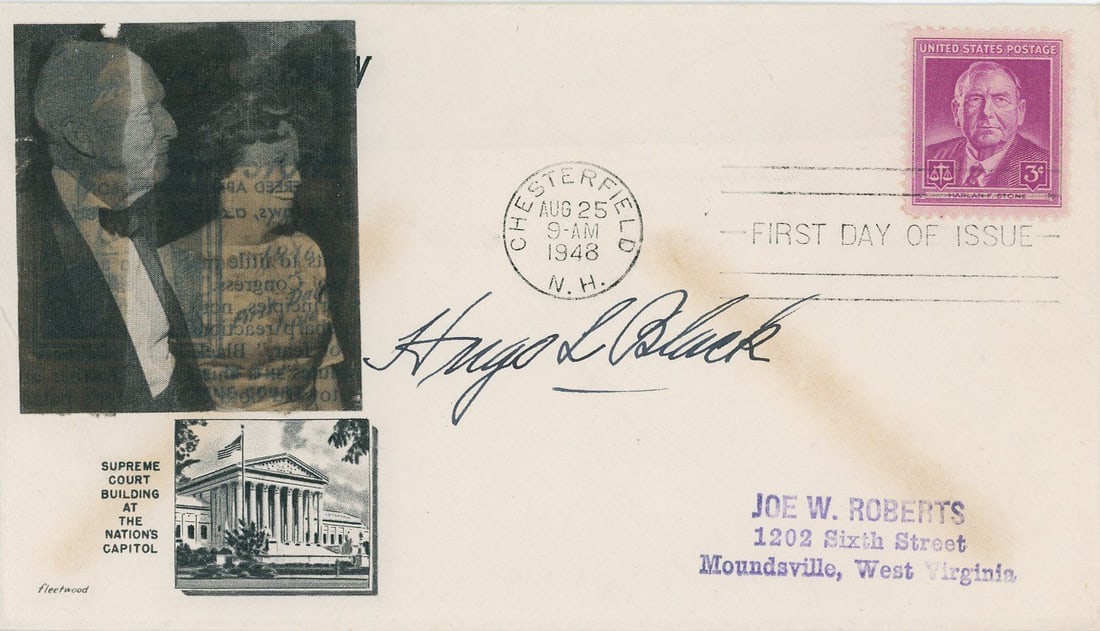 UNITED STATES POSTAGE
3¢
HARLAN F. STONE
CHESTERFIELD
AUG 25
9-AM
1948
N. H.
FIRST DAY OF ISSUE
Hugo L Black
SUPREME
COURT
BUILDING
AT
THE
NATION'S
CAPITOL
fleetwood
JOE W. ROBERTS
1202 Sixth Street
Moundsville, West Virginia